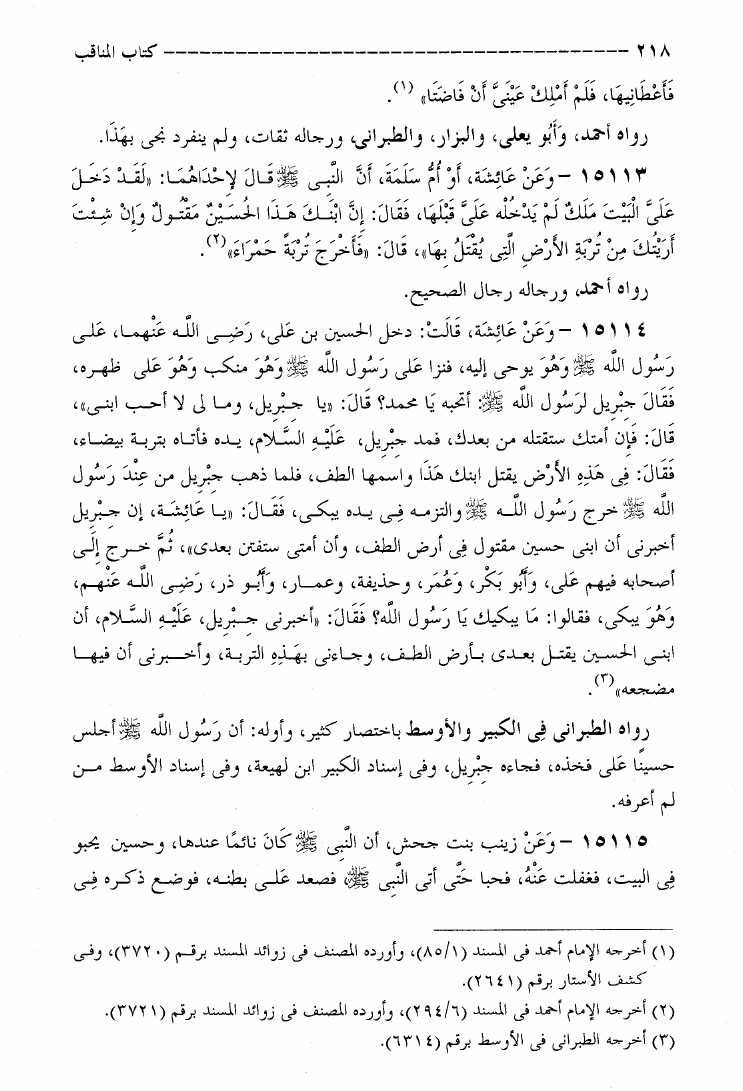 ٢١٨ ـــــــــــــــــــــــــــــــــــــــــ كتاب المناقب
فَأَعْطَانِيهَا، فَلَمْ أَمْلِكْ عَيْنَىَّ أَنْ فَاضَتَا» (١).
رواه أحمد، وَأَبُو يعلى، والبزار، والطبرانى، ورجاله ثقات، ولم ينفرد نجى بهَذَا.
١٥١١٣ – وَعَنْ عَائِشَة، أَوْ أُمُّ سَلَمَةَ، أَنَّ النَّبِى ﷺ قَالَ لإِحْدَاهُمَا: «لَقَدْ دَخَلَ
عَلَىَّ الْبَيْتَ مَلَكٌ لَمْ يَدْخُلْه عَلَىَّ قَبْلَهَا، فَقَالَ: إِنَّ ابْنَكَ هَذَا الحُسَيْنُ مَقْتُولٌ وَإِنْ شِئْتَ
أَرَيْتُكَ مِنْ تُرْبَةِ الأَرْضِ الَّتِى يُقْتَلُ بِهَا»، قَالَ: «فَأَخْرَجَ تُرْبَةً حَمْرَاءَ»(٢).
رواه أحمد، ورجاله رجال الصحيح.
١٥١١٤ – وَعَنْ عَائِشَة، قَالَتْ: دخل الحسين بن عَلى، رَضِى اللَّه عَنْهما، عَلى
رَسُول اللَّه ﷺ وَهُوَ يوحى إليه، فنزا عَلى رَسُول اللَّه ﷺ وَهُوَ منكب وَهُوَ عَلى ظهره،
فَقَالَ جِبْرِيل لرَسُول اللَّه ﷺ: أتحبه يَا محمد؟ قَالَ: «يا جبْرِيل، وما لى لا أحب ابنى»،
قَالَ: فَإِن أمتك ستقتله من بعدك، فمد جبْرِيل، عَلَيْهِ السَّلام، يده فأتاه بتربة بيضاء،
فَقَالَ: فِى هَذِهِ الأَرْض يقتل ابنك هَذَا واسمها الطف، فلما ذهب جبْرِيل من عِنْدَ رَسُول
اللَّه ﷺ خرج رَسُول اللَّه ﷺ والتزمه فِى يده يبكى، فَقَالَ: «يا عَائِشَة، إن جبْرِيل
أخبرنى أن ابنى حسين مقتول فِى أرض الطف، وأن أمتى ستفتن بعدى»، ثُمَّ خرج إلَى
أصحابه فيهم عَلى، وَأَبُو بَكْر، وَعُمَر، وحذيفة، وعمار، وَأَبُو ذر، رَضِى اللَّه عَنْهم،
وَهُوَ يبكى، فقالوا: مَا يبكيك يَا رَسُول اللَّه؟ فَقَالَ: «أخبرنى جبْرِيل، عَلَيْهِ السَّلام، أن
ابنى الحسين يقتل بعدى بأرض الطف، وجاءنى بهَذِهِ التربة، وأخبرنى أن فيها
مضجعه»(٣).
رواه الطبرانى فِى الكبير والأوسط باختصار كثير، وأوله: أن رَسُول اللَّه ﷺ أجلس
حسينًا عَلى فخذه، فجاءه جبْرِيل، وفى إسناد الكبير ابن لهيعة، وفى إسناد الأوسط من
لم أعرفه.
١٥١١٥ – وَعَنْ زينب بنت جحش، أن النَّبِى ﷺ كَانَ نائمًا عندها، وحسين يحبو
فِى البيت، فغفلت عَنْهُ، فحبا حَتَّى أتى النَّبِى ﷺ، فصعد عَلى بطنه، فوضع ذكره فِى
(١) أخرجه الإمام أحمد فى المسند (٨٥/١)، وأورده المصنف فى زوائد المسند برقم (٣٧٢٠)، وفى
كشف الأستار برقم (٢٦٤١).
(٢) أخرجه الإمام أحمد فى المسند (٢٩٤/٦)، وأورده المصنف فى زوائد المسند برقم (٣٧٢١).
(٣) أخرجه الطبرانى فى الأوسط برقم (٦٣١٤).